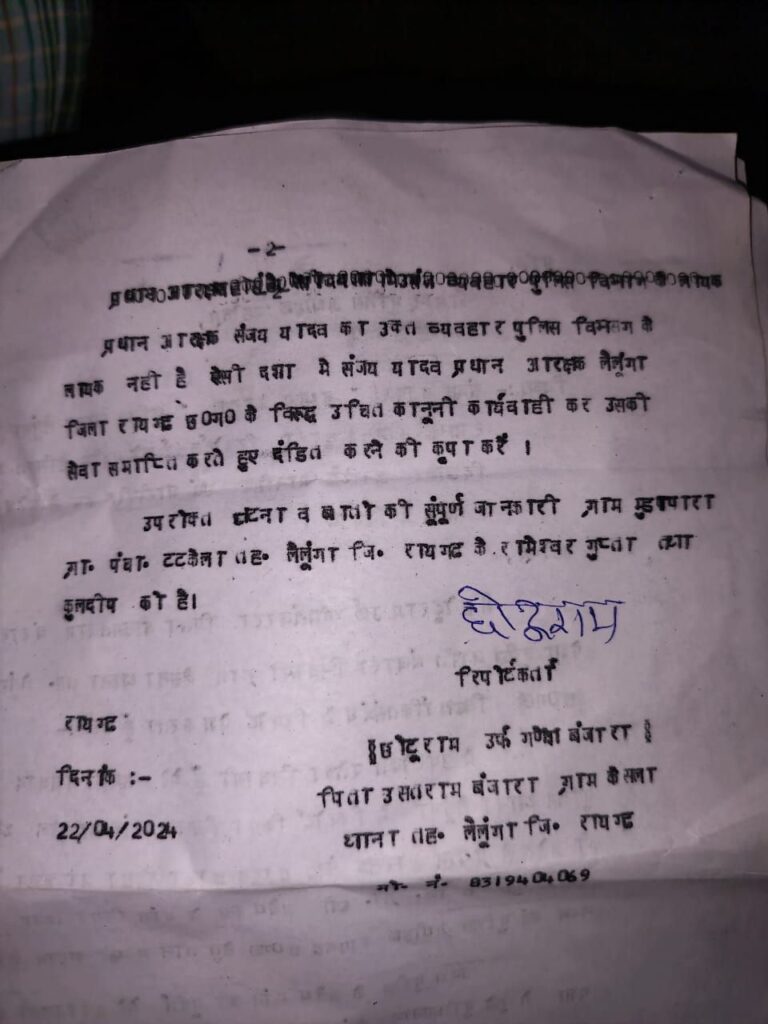 -2-
प्रधान आरक्षक संजय यादव का उक्त व्यवहार पुलिस विभाग के
लायक नही है ऐसी दशा मे संजय यादव प्रधान आरक्षक लैलूंगा
जिला रायगढ छ0ग0 के विरूद्ध उचित कानूनी कार्यवाही कर उसकी
सेवा समाप्ति करते हुए दंडित करने की कृपा करें ।
उपरोक्त घटना व बातो की सूंपूर्ण जानकारी ग्राम मुडापारा
ग्रा॰ पंचा॰ टटकेला तह॰ लैलूंगा जि॰ रायगढ के रामेश्वर गुप्ता तथा
कुलदीप को है।
छोटूराम
रिपोर्टकर्ता
रायगढ
छोटूराम उर्फ गणेश बंजारा
दिनांक :-
पिता उसतराम बंजारा ग्राम केसला
22/04/2024
थाना तह॰ लैलूंगा जि॰ रायगढ
मो॰ नं॰ 8319404069